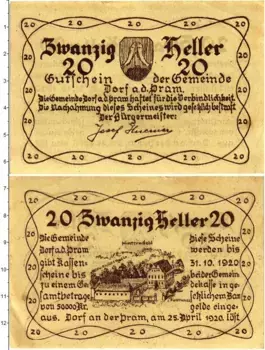 Zwanzig Heller
20 20
Gutschein der Gemeinde
Dorf a.d. Pram.
Die Gemeinde Dorf a.d. Pram haftet für die Verbindlichkeit.
Die Nachahmung dieses Scheines wird gesetzl. bestraft
Der Bürgermeister:
Josef
20 Zwanzig Heller 20
Die Gemeinde
Dorf a.d. Pram
gibt Kassen-
scheine bis
zu einem Ge-
samtbetrage
von 50000 Kr.
aus.
Diese Scheine
werden bis
31.10.1920
bei der Gemein-
dekasse in ge-
setzlichem Bar-
gelde einge-
löst
Dorf an der Pram, am 25. April 1920.